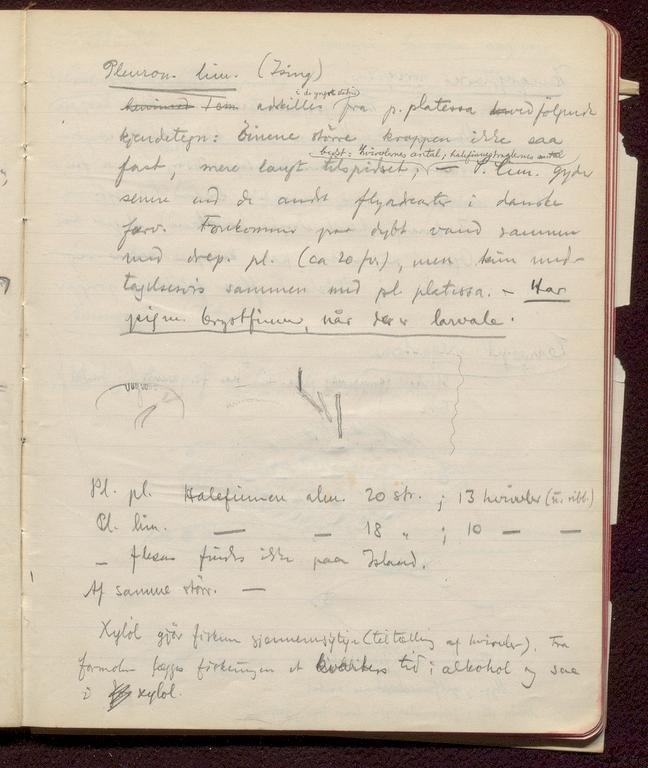 Pleuron. lim. (Ising)
i de yngste stadier
adskilles fra p. platessa ved følgende
kjendetegn: Øinene større kroppen ikke saa
bedst: Hvirvlenes antal; halefinnestraalenes antal
fast, mere langt tilspidset; — P. lim. gyder
senere end de andre flyndrearter i danske
farv. Forekommer paa dybt vand sammen
med drep. pl. (ca 20 fv), men kun und-
tagelsesvis sammen med pl platessa. — Har
pigm. brystfinner, når de er larvale.
Pl. pl. Halefinnen alm. 20 str. ; 13 hvirvler (u. ribb.)
Pl. lim. — — 18 " ; 10 — —
— flesus findes ikke paa Island.
Af samme størr. —
Xylol gjør fisken gjennemsigtig (til tælling af hvirvler). Fra
formolen lægges fiskeungen et kvarters tid i alkohol og saa
i xylol.